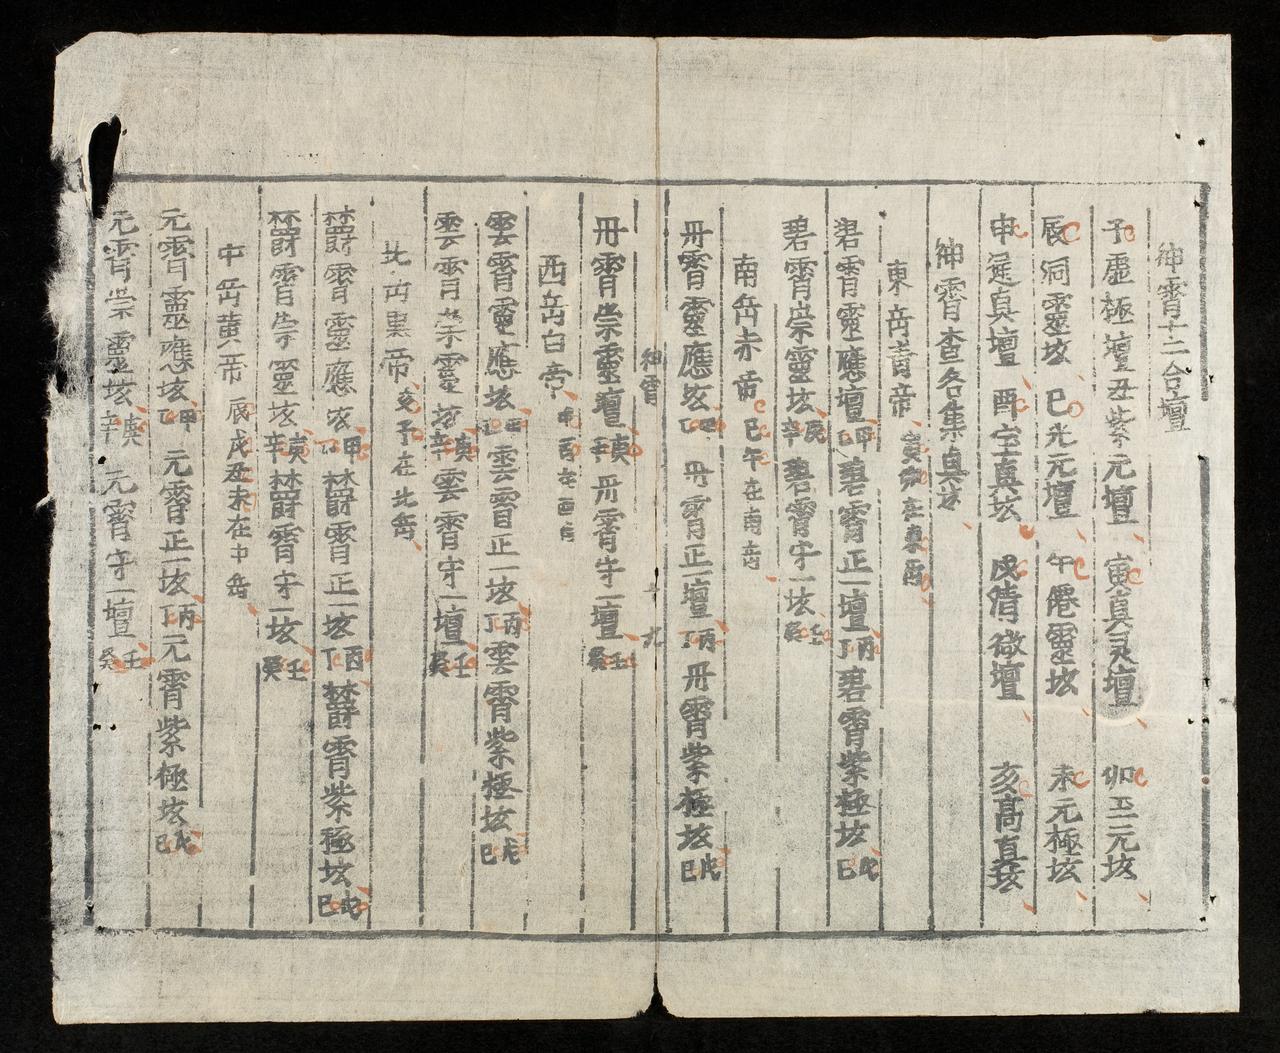 神霄十二合壇
子虛極壇 丑紫元壇 寅真灵壇 卯正元垓
辰洞靈垓 巳光元壇 午僊靈垓 未元極垓
申延真壇 酉空真垓 戌清微壇 亥高真垓
神霄查名集真垓
東岳青帝 寅卯在東岳
碧霄靈應壇甲乙 碧霄正一壇丙丁 碧霄紫極垓戊己
碧霄崇靈垓庚辛 碧霄守一垓壬癸
南岳赤帝 巳午在南岳
丹霄靈應垓甲乙 丹霄正一壇丙丁 丹霄紫極垓戊己
神霄 九
丹霄崇靈壇庚辛 丹霄守一壇壬癸
西岳白帝 申酉在西岳
雲霄靈應垓甲乙 雲霄正一垓丙丁 雲霄紫極垓戊己
雲霄崇靈垓庚辛 雲霄守一壇壬癸
北岳黑帝 亥子在北岳
霄靈應垓甲乙 霄正一垓丙丁 霄紫極垓戊己
霄崇靈垓庚辛 霄守一垓壬癸
中岳黃帝 辰戌丑未在中岳
元霄靈應垓甲乙 元霄正一垓丙丁 元霄紫極垓戊己
元霄崇靈垓庚辛 元霄守一壇壬癸